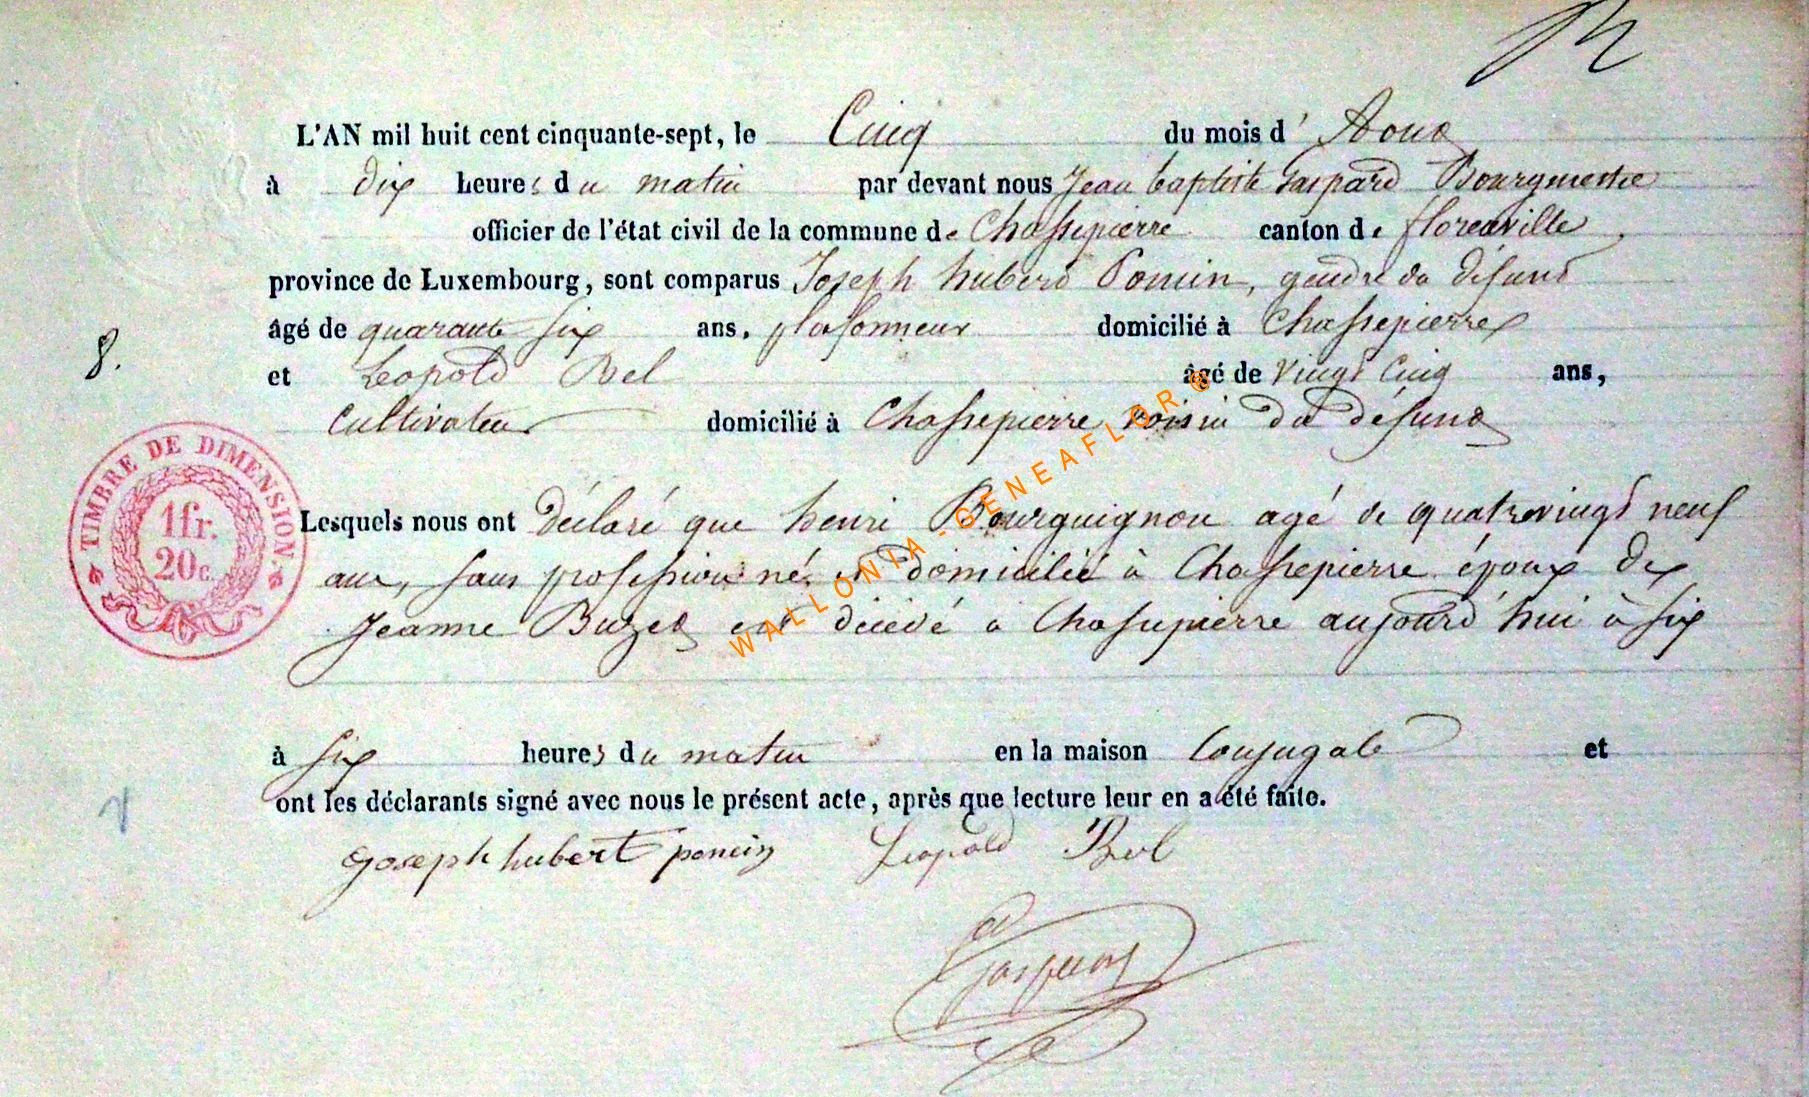 L'AN mil huit cent cinquante-sept, le Cinq du mois d' Aout
à dix heures du matin par devant nous Jean baptiste Gaspard Bourgmestre
officier de l'état civil de la commune de Chassepierre canton de florenville
province de Luxembourg, sont comparus Joseph hubert Poncin, gendre du défunt
âgé de quarante six ans, plafonneur domicilié à Chassepierre
8.
et Leopold Bel âgé de vingt Cinq ans,
Cultivateur domicilié à Chassepierre voisin du défunt
TIMBRE DE DIMENSION.
1fr.
20c.
Lesquels nous ont déclaré que henri Bourguignon agé de quatrevingt neuf
ans, sans profession né et domicilié à Chassepierre époux de
Jeanne Buzet est décédé a Chassepierre aujourd'hui à six
à six heures du matin en la maison Conjugale et
ont les déclarants signé avec nous le présent acte, après que lecture leur en a été faite.
Joseph hubert poncin Leopold Bel
Gaspard
WALLONIA-GENEAFLOR®